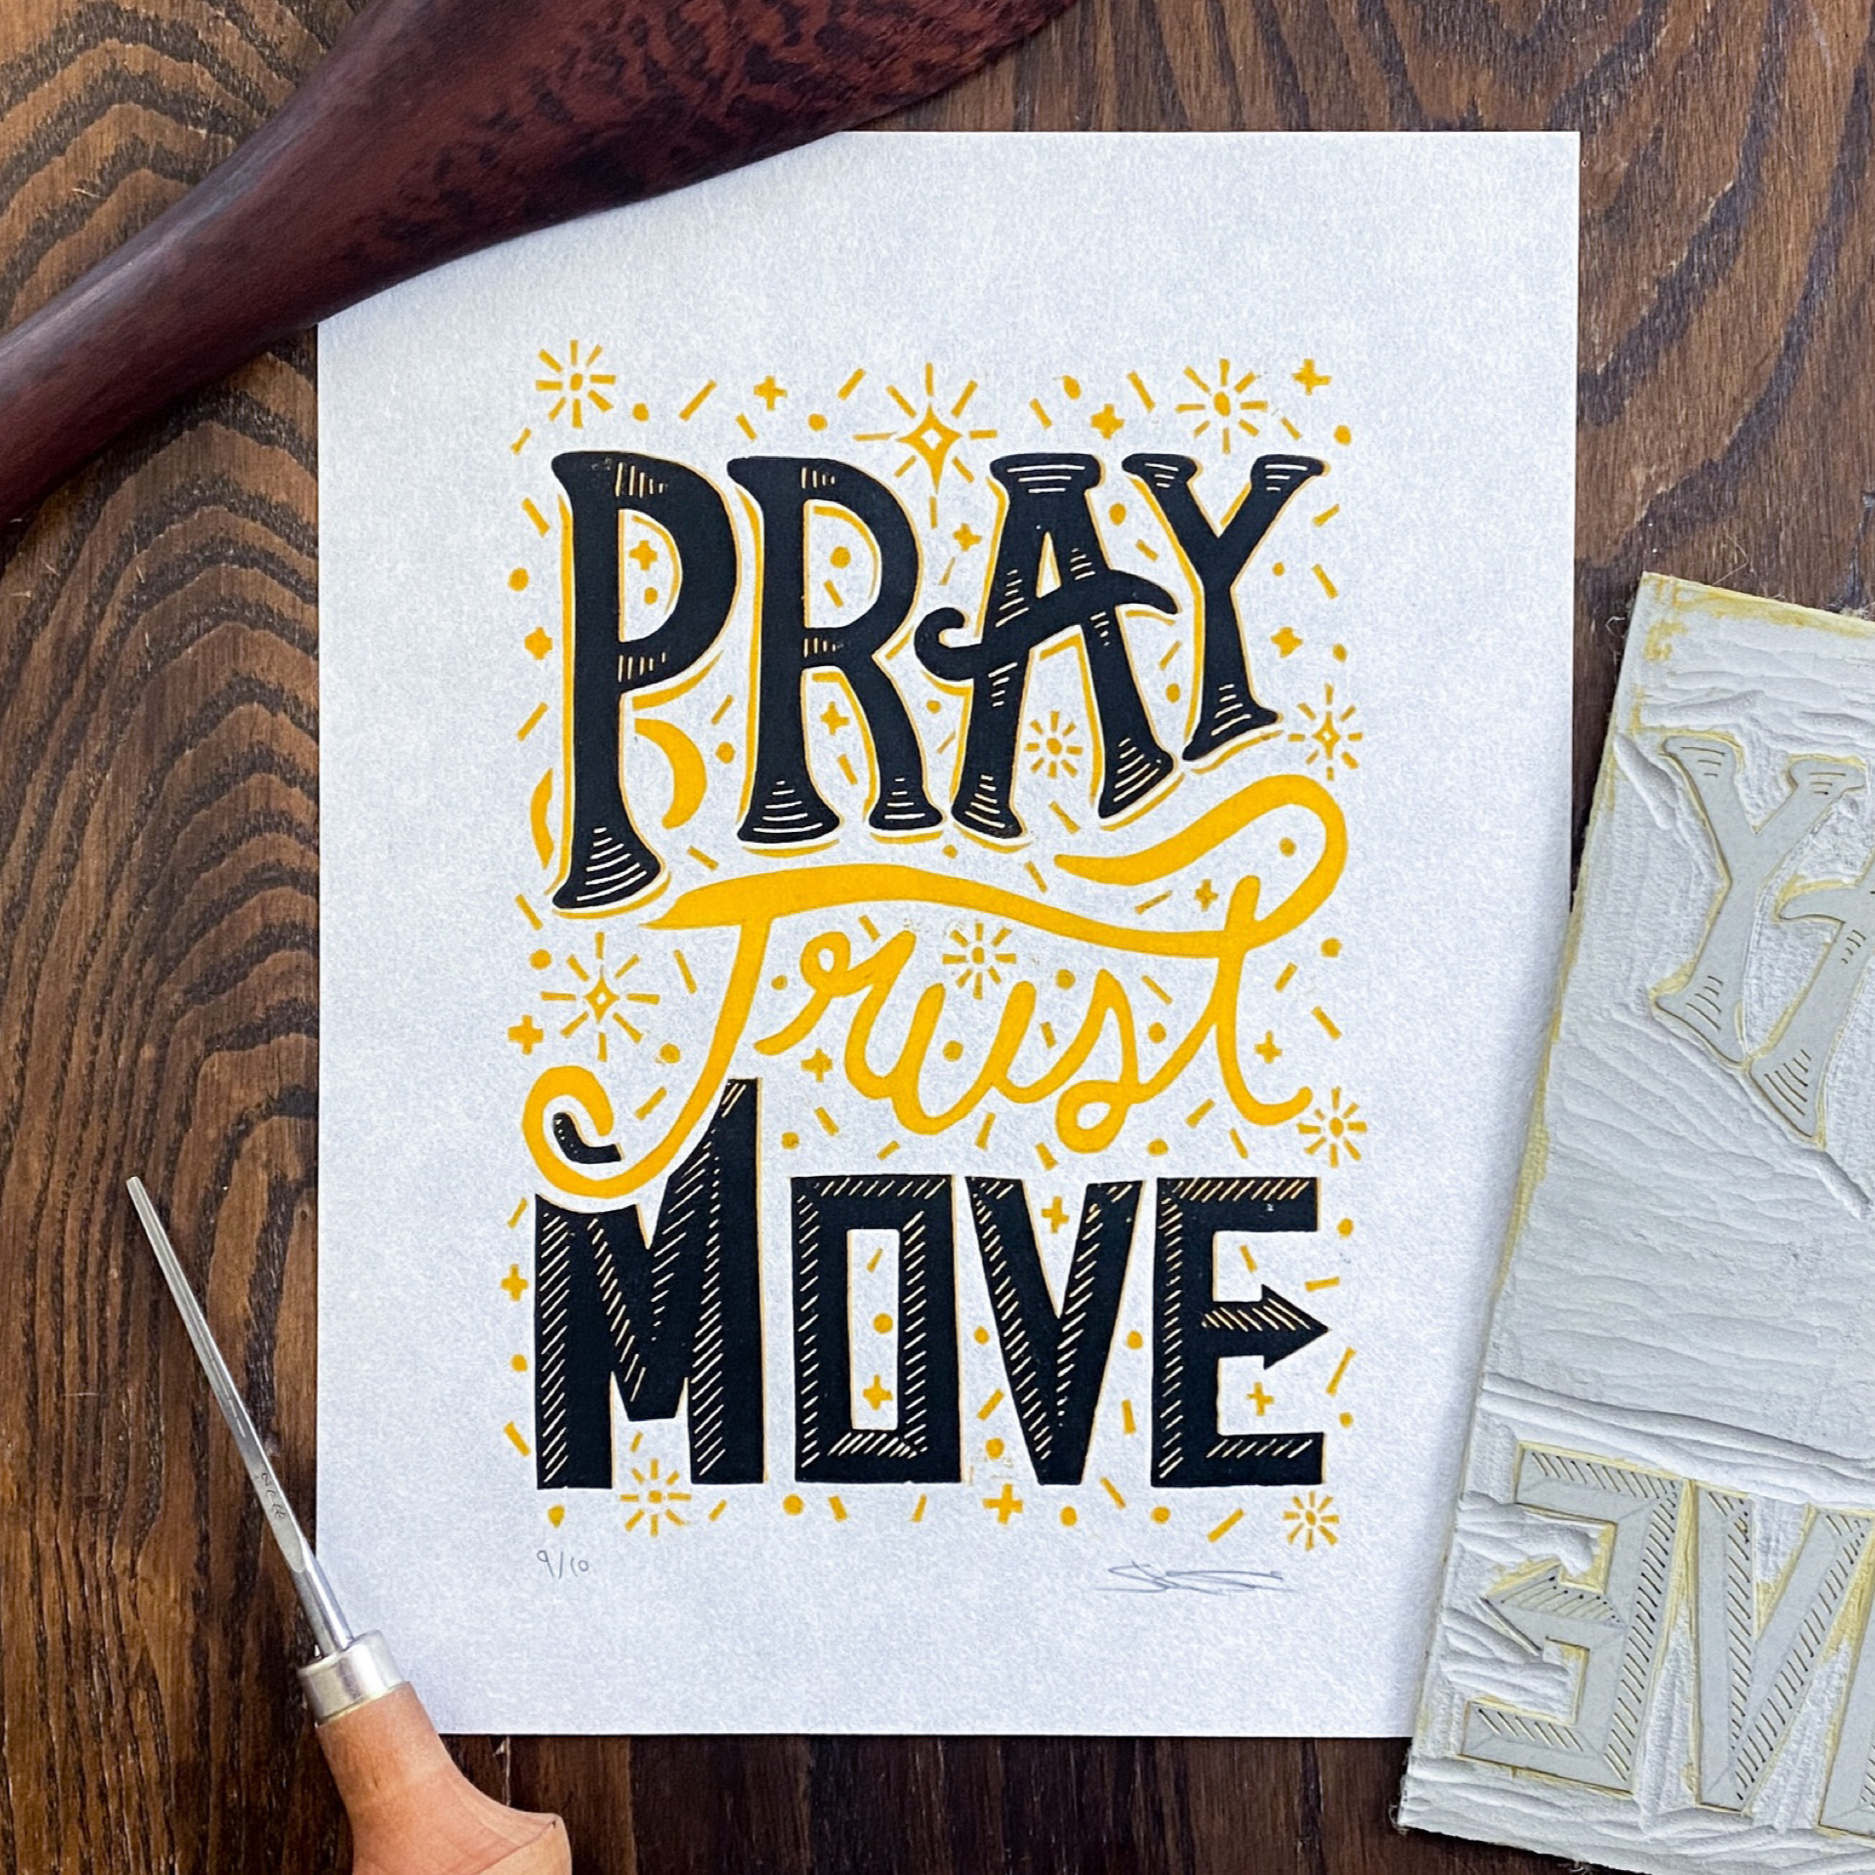 PRAY
Trust
MOVE
9/10